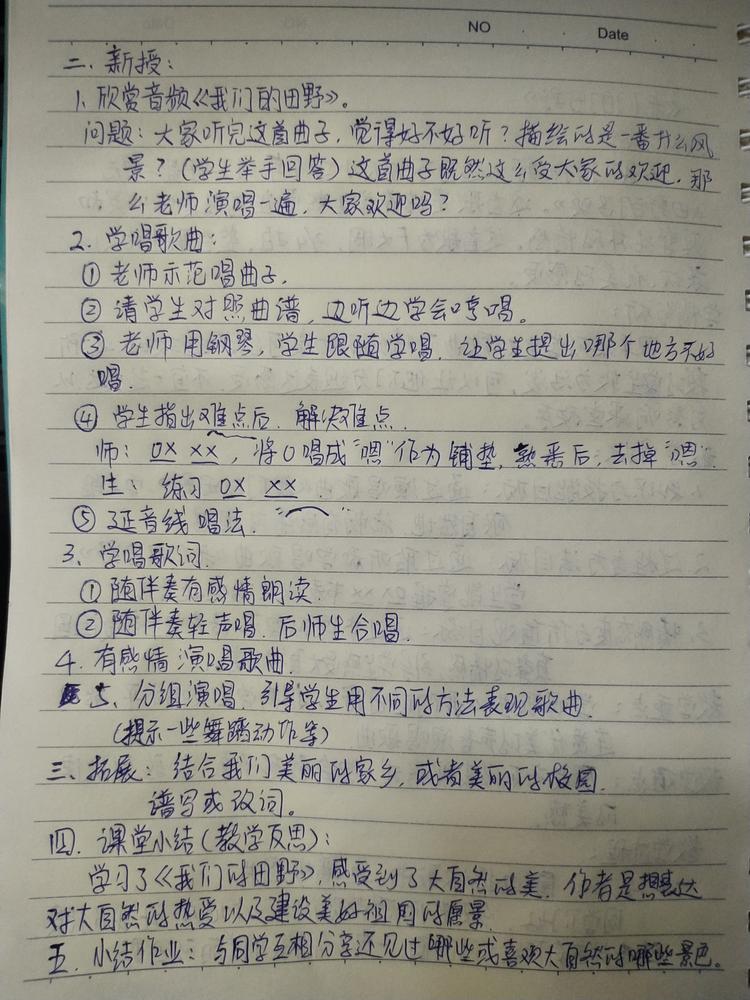 NO
Date
二、新授：
1、欣赏音频《我们的田野》。
问题：大家听完这首曲子，觉得好不好听？描绘的是一番什么风
景？（学生举手回答）这首曲子既然这么受大家的欢迎，那
么老师演唱一遍，大家欢迎吗？
2、学唱歌曲：
① 老师示范唱曲子，
② 请学生对照曲谱，边听边学会哼唱。
③ 老师用钢琴，学生跟随学唱，让学生提出哪个地方不好
唱。
④ 学生指出难点后，解决难点，
师：0X XX，将0唱成“嗯”作为铺垫，熟悉后，去掉“嗯”
生：练习0X XX
⑤ 延音线唱法，
3、学唱歌词
① 随伴奏有感情朗读
② 随伴奏轻声唱，后师生合唱，
4、有感情演唱歌曲，
5、分组演唱，引导学生用不同的方法表现歌曲，
（提示一些舞蹈动作等）
三、拓展：结合我们美丽的家乡，或者美丽的校园，
谱写或改词。
四、课堂小结（教学反思）：
学习了《我们的田野》，感受到了大自然的美，作者是想表达
对大自然的热爱以及建设美好祖国的愿景
五、小结作业：与同学互相分享还见过哪些或喜欢大自然的哪些景色。